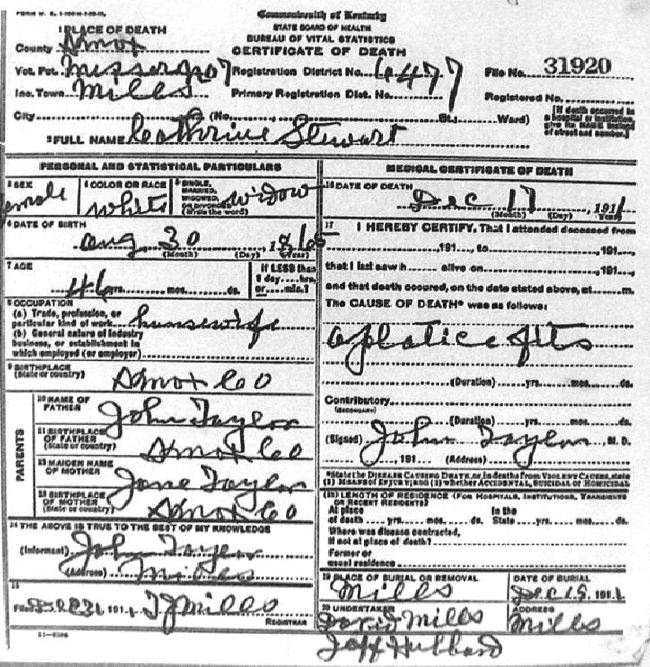 Commonwealth of Kentucky
STATE BOARD OF HEALTH
BUREAU OF VITAL STATISTICS
CERTIFICATE OF DEATH
1 PLACE OF DEATH
County Knox
Vot. Pct. Registration District No. 6477 File No. 31920
Inc. Town Mills Primary Registration Dist. No. Registered No.
City (No. St., Ward) [If death occurred in a hospital or institution, give its NAME instead of street and number.]
2 FULL NAME Catherine Stewart
PERSONAL AND STATISTICAL PARTICULARS
3 SEX 4 COLOR OR RACE 5 SINGLE, MARRIED, WIDOWED, OR DIVORCED (Write the word)
female white widow
6 DATE OF BIRTH
Aug 30 1865
(Month) (Day) (Year)
7 AGE If LESS than
46 yrs. mos. ds. 1 day hrs. or min.?
8 OCCUPATION
(a) Trade, profession, or
particular kind of work housewife
(b) General nature of industry
business, or establishment in
which employed (or employer)
9 BIRTHPLACE
(State or country) Knox Co
PARENTS
10 NAME OF
FATHER John Taylor
11 BIRTHPLACE
OF FATHER
(State or country) Knox Co
12 MAIDEN NAME
OF MOTHER Jane Taylor
13 BIRTHPLACE
OF MOTHER
(State or country) Knox Co
14 THE ABOVE IS TRUE TO THE BEST OF MY KNOWLEDGE
(Informant) John Taylor
(Address) Mills
15
Filed 1911 T J Mills
REGISTRAR
MEDICAL CERTIFICATE OF DEATH
16 DATE OF DEATH
Dec 17 1911
(Month) (Day) (Year)
17 I HEREBY CERTIFY, That I attended deceased from
191 , to 191 ,
that I last saw h alive on 191 ,
and that death occured, on the date stated above, at m.
The CAUSE OF DEATH* was as follows:
fits
(Duration) yrs. mos. ds.
Contributory
(SECONDARY)
(Duration) yrs. mos. ds.
(Signed) John Taylor M. D.
191 (Address)
*State the DISEASE CAUSING DEATH, or, in deaths from VIOLENT CAUSES, state
(1) MEANS OF INJURY; and (2) whether ACCIDENTAL, SUICIDAL or HOMICIDAL
18 LENGTH OF RESIDENCE (FOR HOSPITALS, INSTITUTIONS, TRANSIENTS
OR RECENT RESIDENTS)
At place In the
of death yrs. mos. ds. State yrs. mos. ds.
Where was disease contracted,
if not at place of death?
Former or
usual residence
19 PLACE OF BURIAL OR REMOVAL DATE OF BURIAL
Mills 1911
20 UNDERTAKER ADDRESS
David Mills Mills
Jeff Hubbard